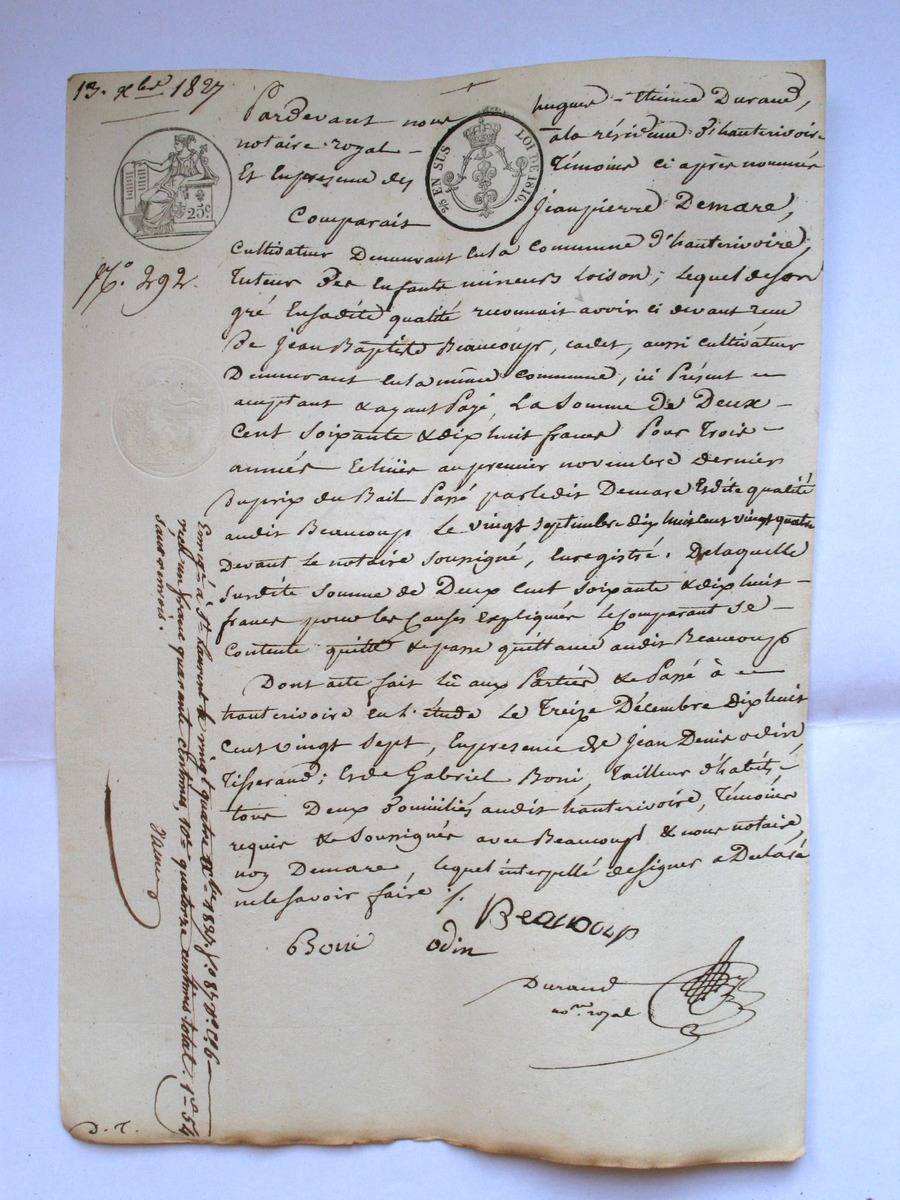 13. xbre 1827
25c
2/5 EN SUS
LOI DE 1816.
N.° 292.
Pardevant nous hugues-étienne Durand,
notaire royal - à la résidence d'hauterivoire
Et En présence des Témoins ci après nommés
Comparait Jean pierre Demare,
Cultivateur Demeurant En la Commune d'hauterivoire,
Tuteur des Enfants mineurs Loison; Lequel de son
gré En sadite qualité reconnait avoir ci devant recu
De Jean Baptiste Beaucoup, cadet, aussi Cultivateur
Demeurant En la même Commune, ici Présent et
acceptant & ayant Payé, La Somme de Deux -
Cent Soixante & dix huit francs Pour Trois -
années Echues au premier novembre dernier
du prix du Bail Passé par ledit Demare Esdite qualité
audit Beaucoup Le vingt septembre dix huit cent vingt quatre
Devant Le notaire soussigné, Enregistré. De laquelle
susdite somme de Deux Cent soixante & dix huit -
francs pour les causes expliquées Le Comparant se -
Contente quitte & passe quittance audit Beaucoup
Dont acte fait lû aux Parties & Passé à
hauterivoire En l'étude Le Treize Décembre dix huit
Cent vingt sept, En présence de Jean Denis odin,
Tisserand; Et de Gabriel Boni, Tailleur d'habits -
tous Deux domiciliés audit hauterivoire, Témoins
requis & Soussignés avec Beaucoup & nous notaire,
non Demare Lequel interpellé de signer a Déclaré
ne le savoir faire ./.
Beaucoup
Boni odin
Durand
no.re royal
Enreg.é à St. Laurent le vingt quatre xbre 1827. f.°
reçu un franc quarante centimes, 10.me quatorze centimes total. 1f 54
sans renvois.
D. T.